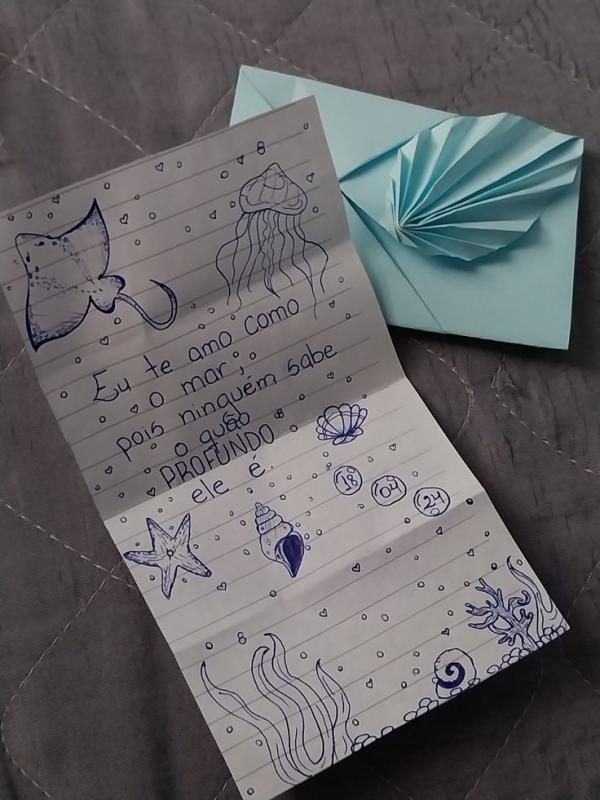 Eu te amo como
o mar;
pois ninguém sabe
o quão
PROFUNDO
ele é.
18 04 24